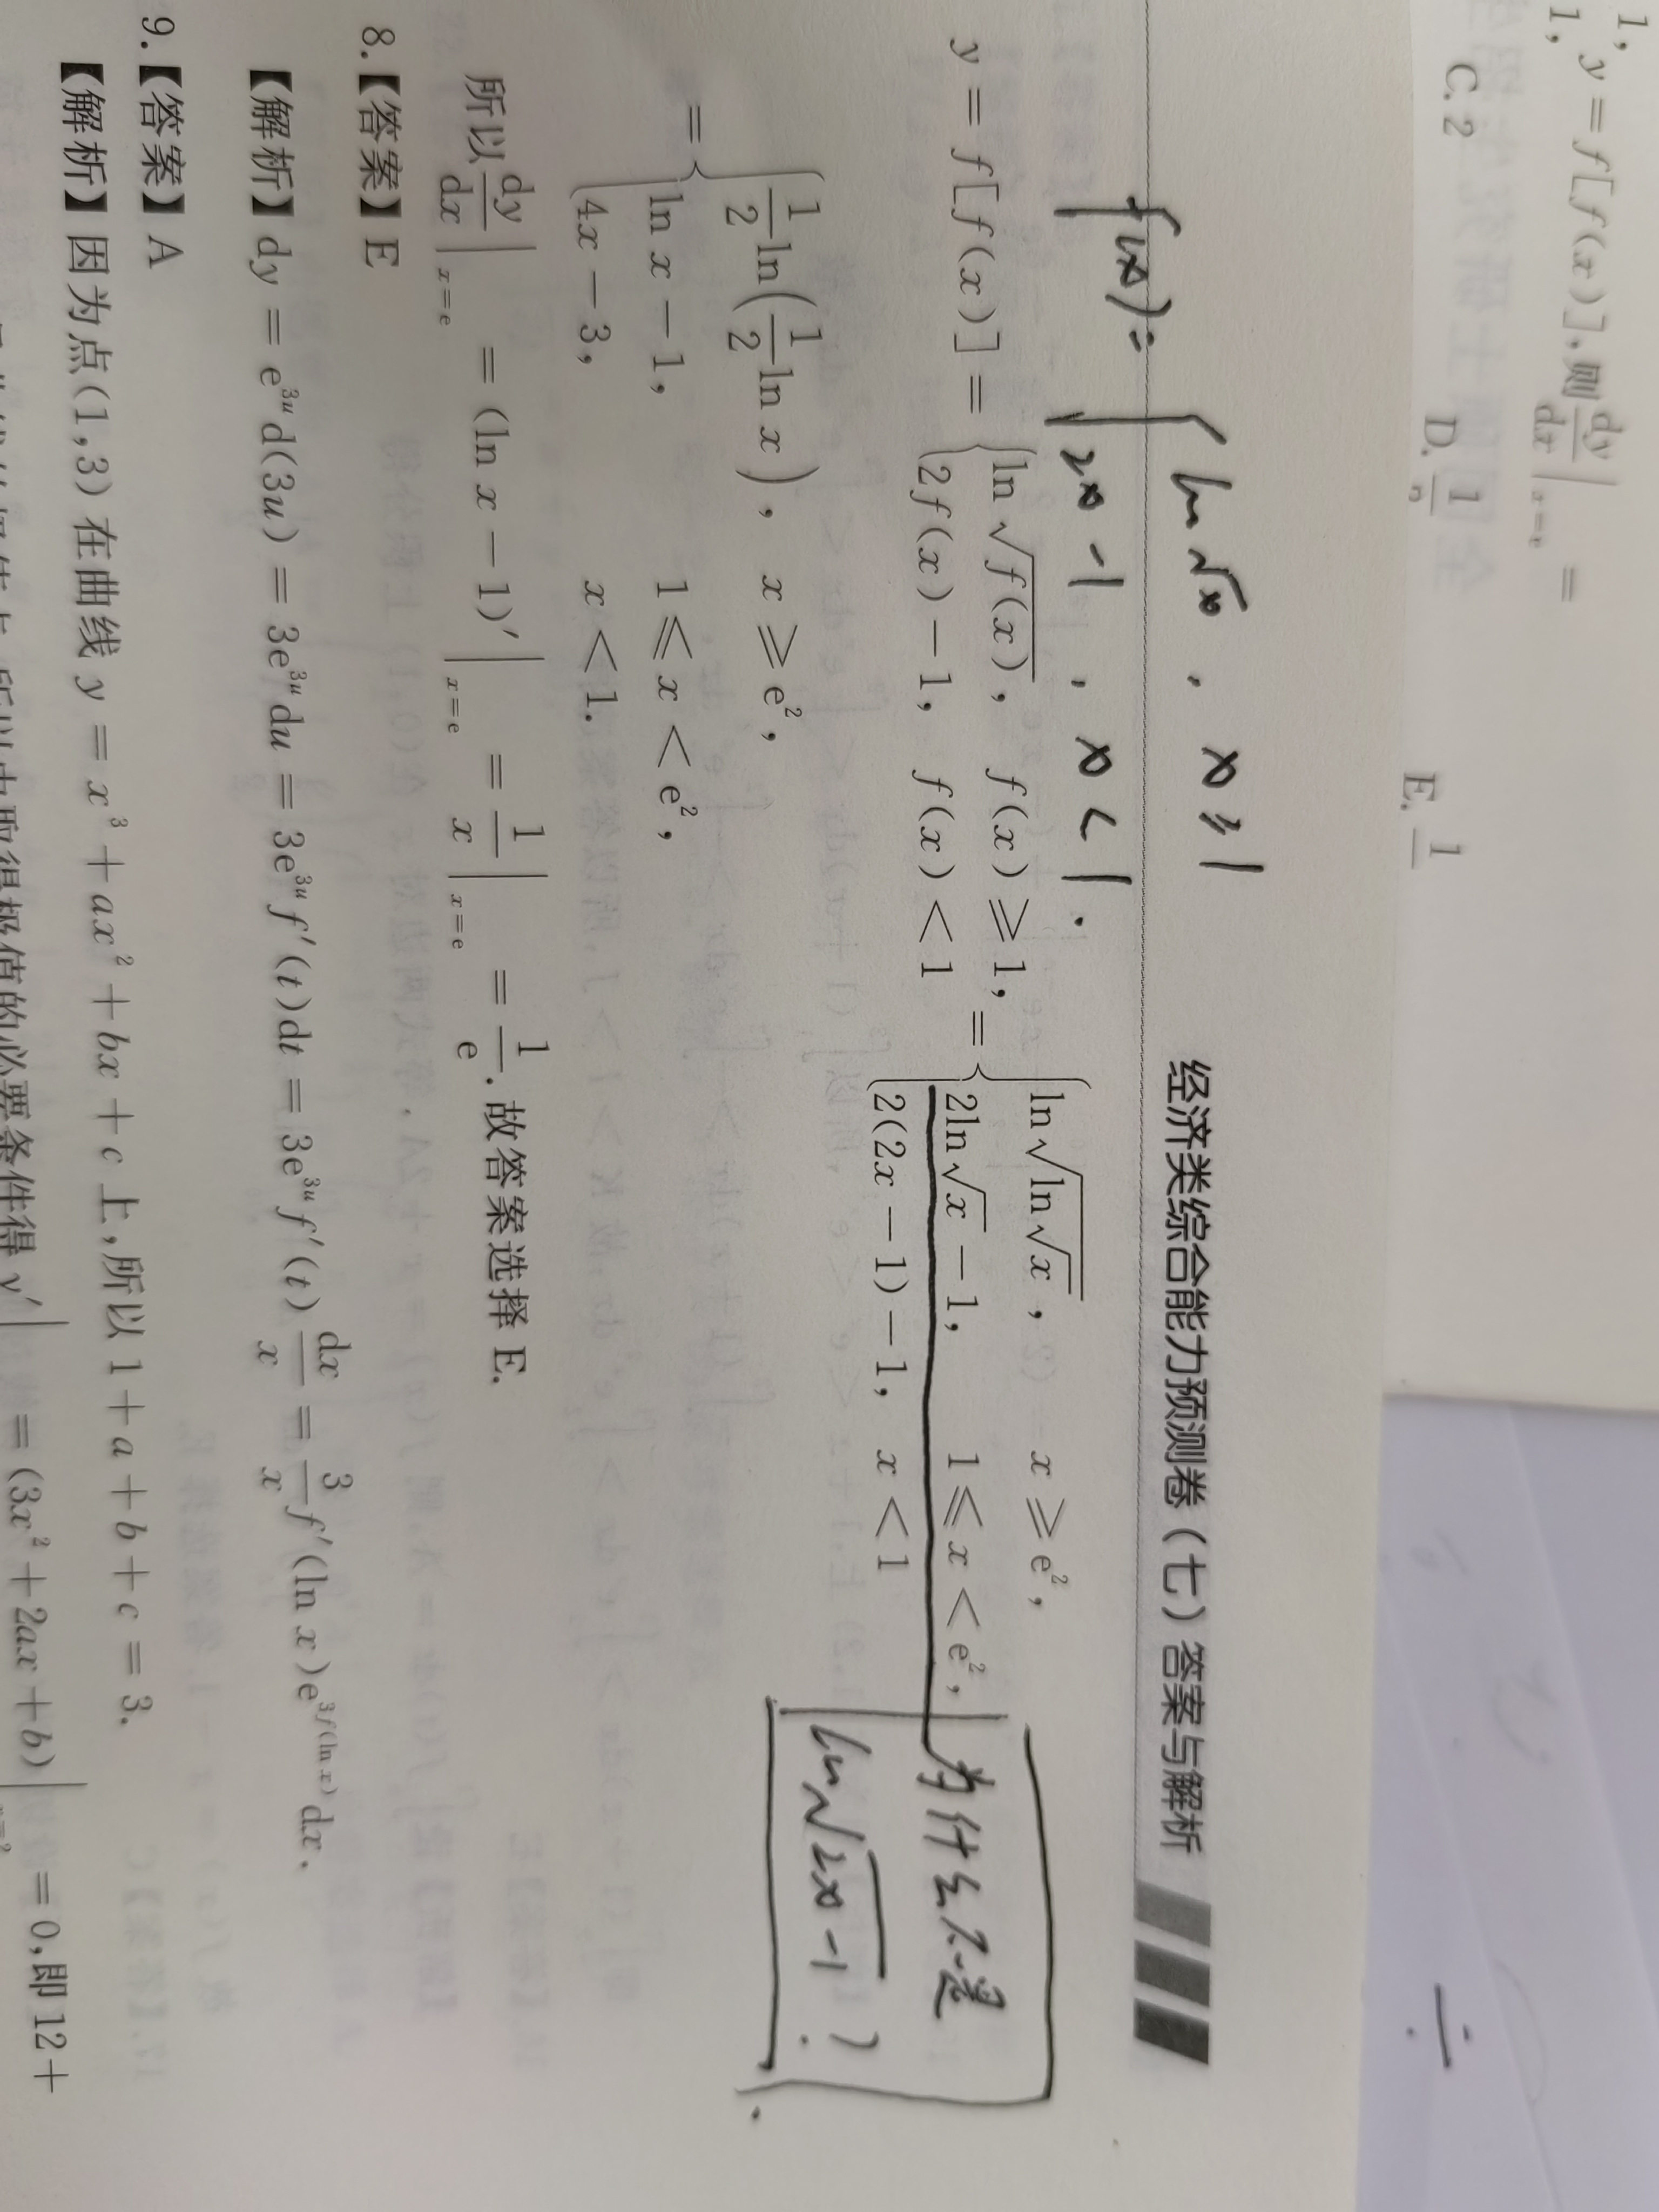 1,
1, y = f[f(x)], 则 dy/dx |x=e =
C. 2 D. 1/ E. 1/
经济类综合能力预测卷（七）答案与解析
f(x) = { ln√x , x ≥ 1
2x - 1 , x < 1.
y = f[f(x)] = { ln √f(x), f(x) ⩾ 1,
2f(x) - 1, f(x) < 1
= { ln√(ln√x), x ⩾ e²,
2ln√x - 1, 1 ⩽ x < e²,
2(2x - 1) - 1, x < 1
为什么不是
ln√(2x-1) ?
= { 1/2 ln(1/2 ln x), x ⩾ e²,
ln x - 1, 1 ⩽ x < e²,
4x - 3, x < 1.
所以 dy/dx |x=e = (ln x - 1)′ |x=e = 1/x |x=e = 1/e. 故答案选择 E.
8.【答案】E
【解析】dy = e³ᵘd(3u) = 3e³ᵘdu = 3e³ᵘf′(t)dt = 3e³ᵘf′(t) dx/x = 3/x f′(ln x)e^{3f(ln x)}dx.
9.【答案】A
【解析】因为点(1,3)在曲线 y = x³ + ax² + bx + c 上,所以 1 + a + b + c = 3.
所以由取得极值的必要条件得 y′| = (3x² + 2ax + b)| = 0,即 12 +